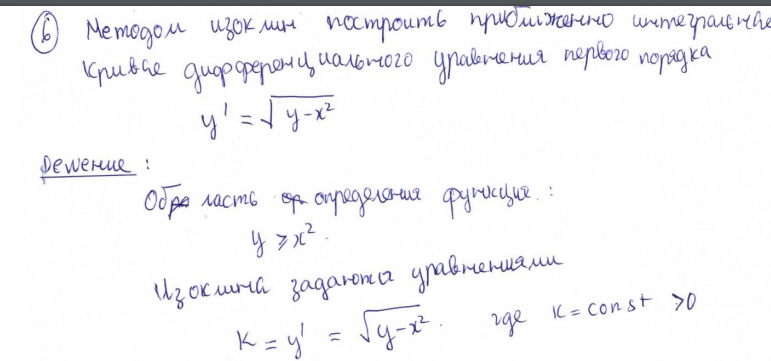 ⑥ Методом изоклин построить приближенно интегральные
кривые дифференциального уравнения первого порядка
y' = √(y-x²)
Решение :
Область определения функции :
y ⩾ x².
Изоклина задаются уравнениями
K = y' = √(y-x²). где K = const >0